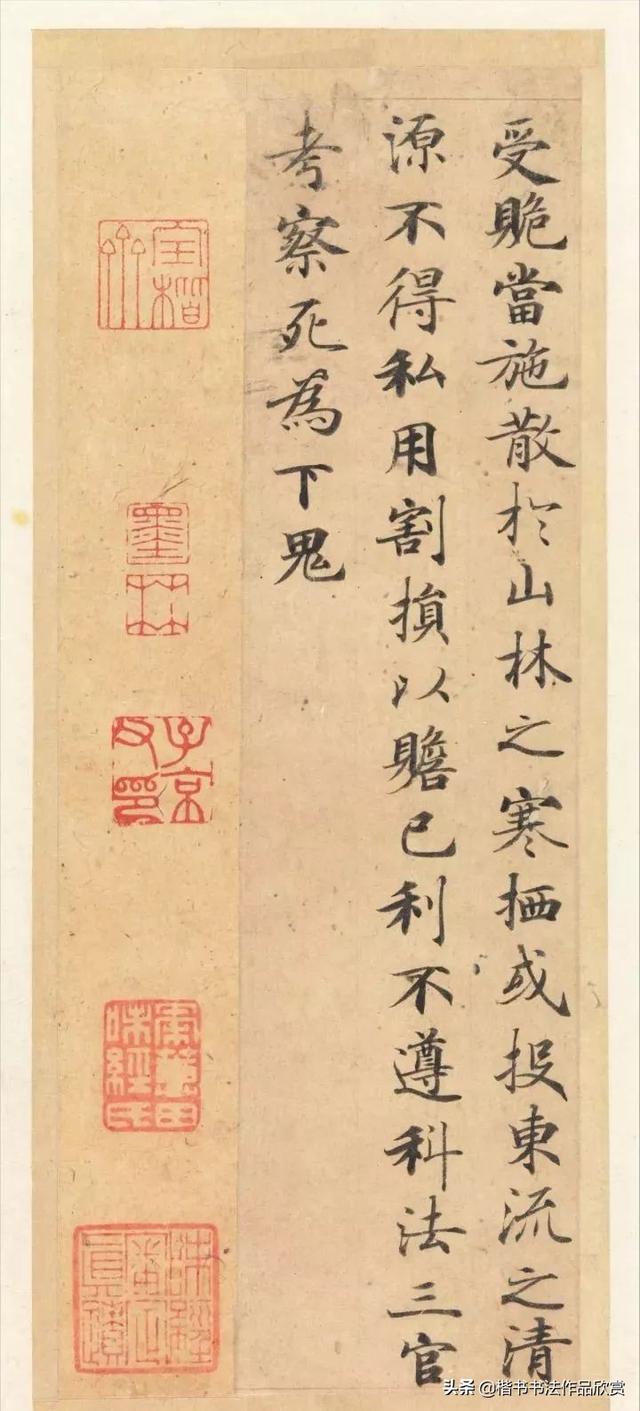 受賄當施散於山林之寒栖或投東流之清
源不得私用割損以贍已利不遵科法三官
考察死為下鬼
墨林
子京父印
头条@楷书书法作品欣赏